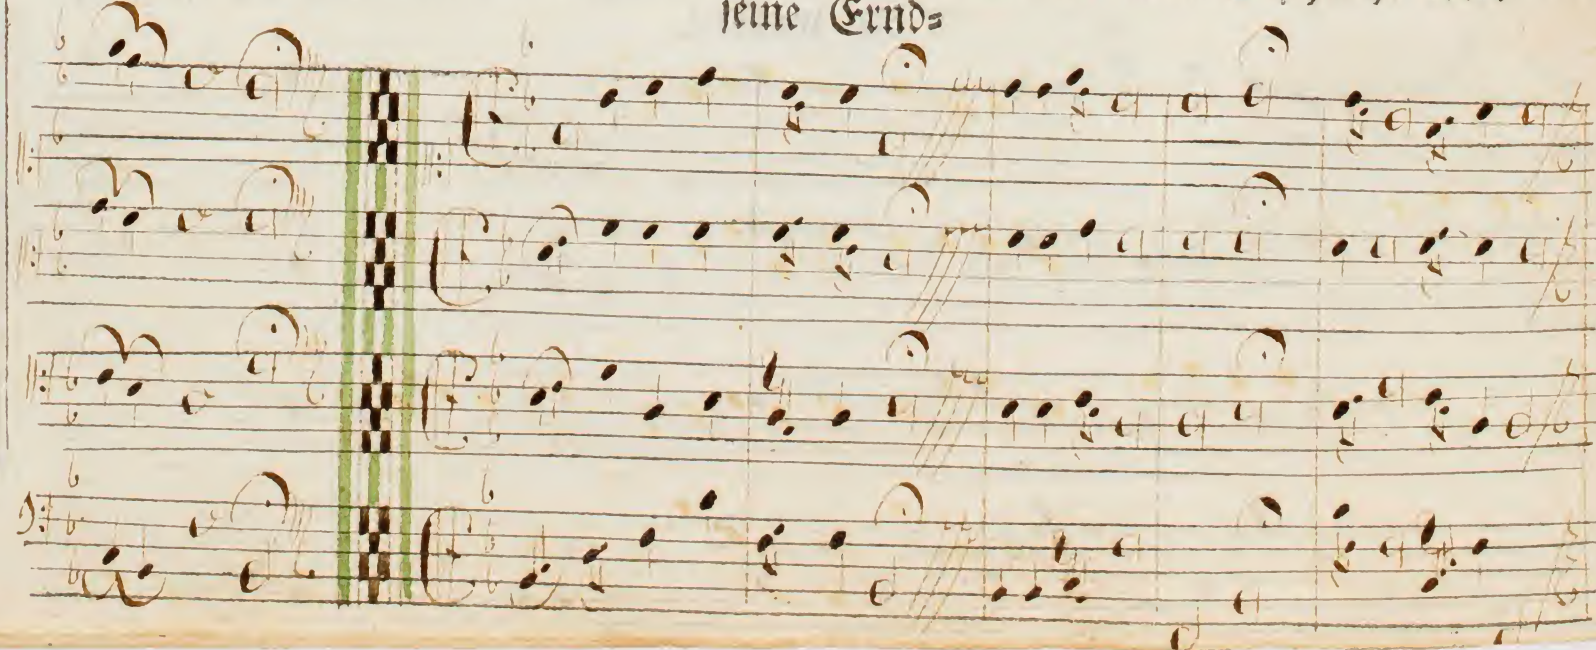 seine Ernd=